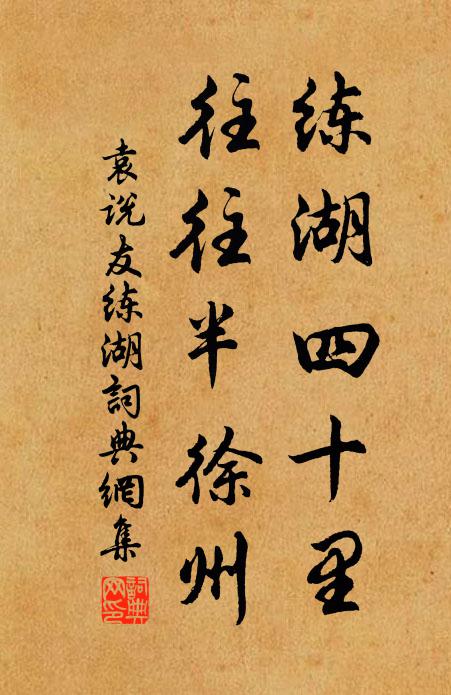 练湖四十里
往往半徐州
袁说友练湖詞典網集
詞典網印